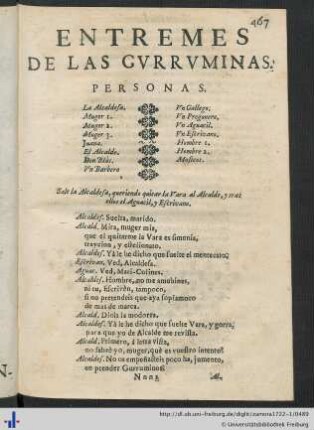 467
ENTREMES
DE LAS GVRRVMINAS.
PERSONAS.
La Alcaldesa.
Muger 1.
Muger 2.
Muger 3.
Juana.
El Alcalde.
Don Blàs.
Vn Barbero
Vn Gallego.
Vn Pregonero.
Vn Aguacil.
Vn Escrivano.
Hombre 1.
Hombre 2.
Musicos.
Sale la Alcaldesa, queriendo quitar la Vara al Alcalde, y tras
ellos el Aguacil, y Escrivano.
Alcaldes. Suelta, marido.
Alcald. Mira, muger mia,
que el quitarme la Vara es
traycion, y
Alcaldes. Yà le he dicho que suelte el mentecato;
Escrivan. Ved, Alcaldesa.
Aguac. Ved, Mari-Cosines.
Alcaldes. Hombre, no me amohines,
ni tu, Escrivèn, tampoco,
si no pretendeis que aya
de mas de marca.
Alcald. Dióla la modorra.
Alcaldes. Yà le he dicho que suelte Vara, y gorra,
para que yo de Alcalde me revista.
Alcald. Primero, à letra vista,
no sabrè yo, muger, què es vuestro intento?
Alcaldes. No os empeñasteis poco ha, jumento,
en prender Gurruminos?
Nnn 3
Al.
N-
http://dl.ub.uni-freiburg.de/diglit/zamora1722-1/0489
© Universitätsbibliothek Freiburg